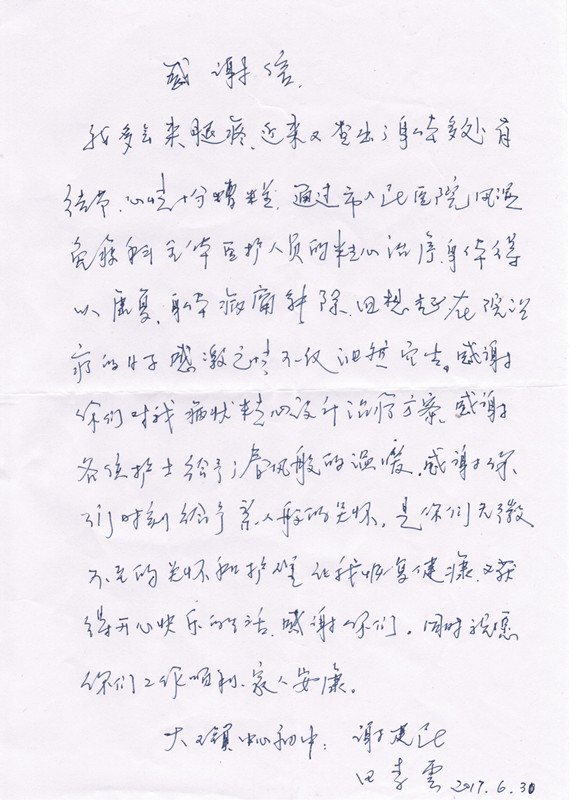 感谢信
我多年来腿疼，近来又查出了身体多处有
结节，心情十分糟糕，通过市人民医院风湿
免疫科全体医护人员的精心治疗，身体得
以康复，身体病痛解除，回想起在院治
疗的日子感激之情不仅油然而生。感谢
你们对我病状精心设计治疗方案，感谢
各位护士给予了春风般的温暖，感谢你
们时刻给予亲人般的关怀，是你们无微
不至的关怀和护理让我恢复健康，又获
得开心快乐的生活，感谢你们。同时祝愿
你们工作顺利、家人安康。
大王镇中心初中：谢建民
田孝云 2017.6.30